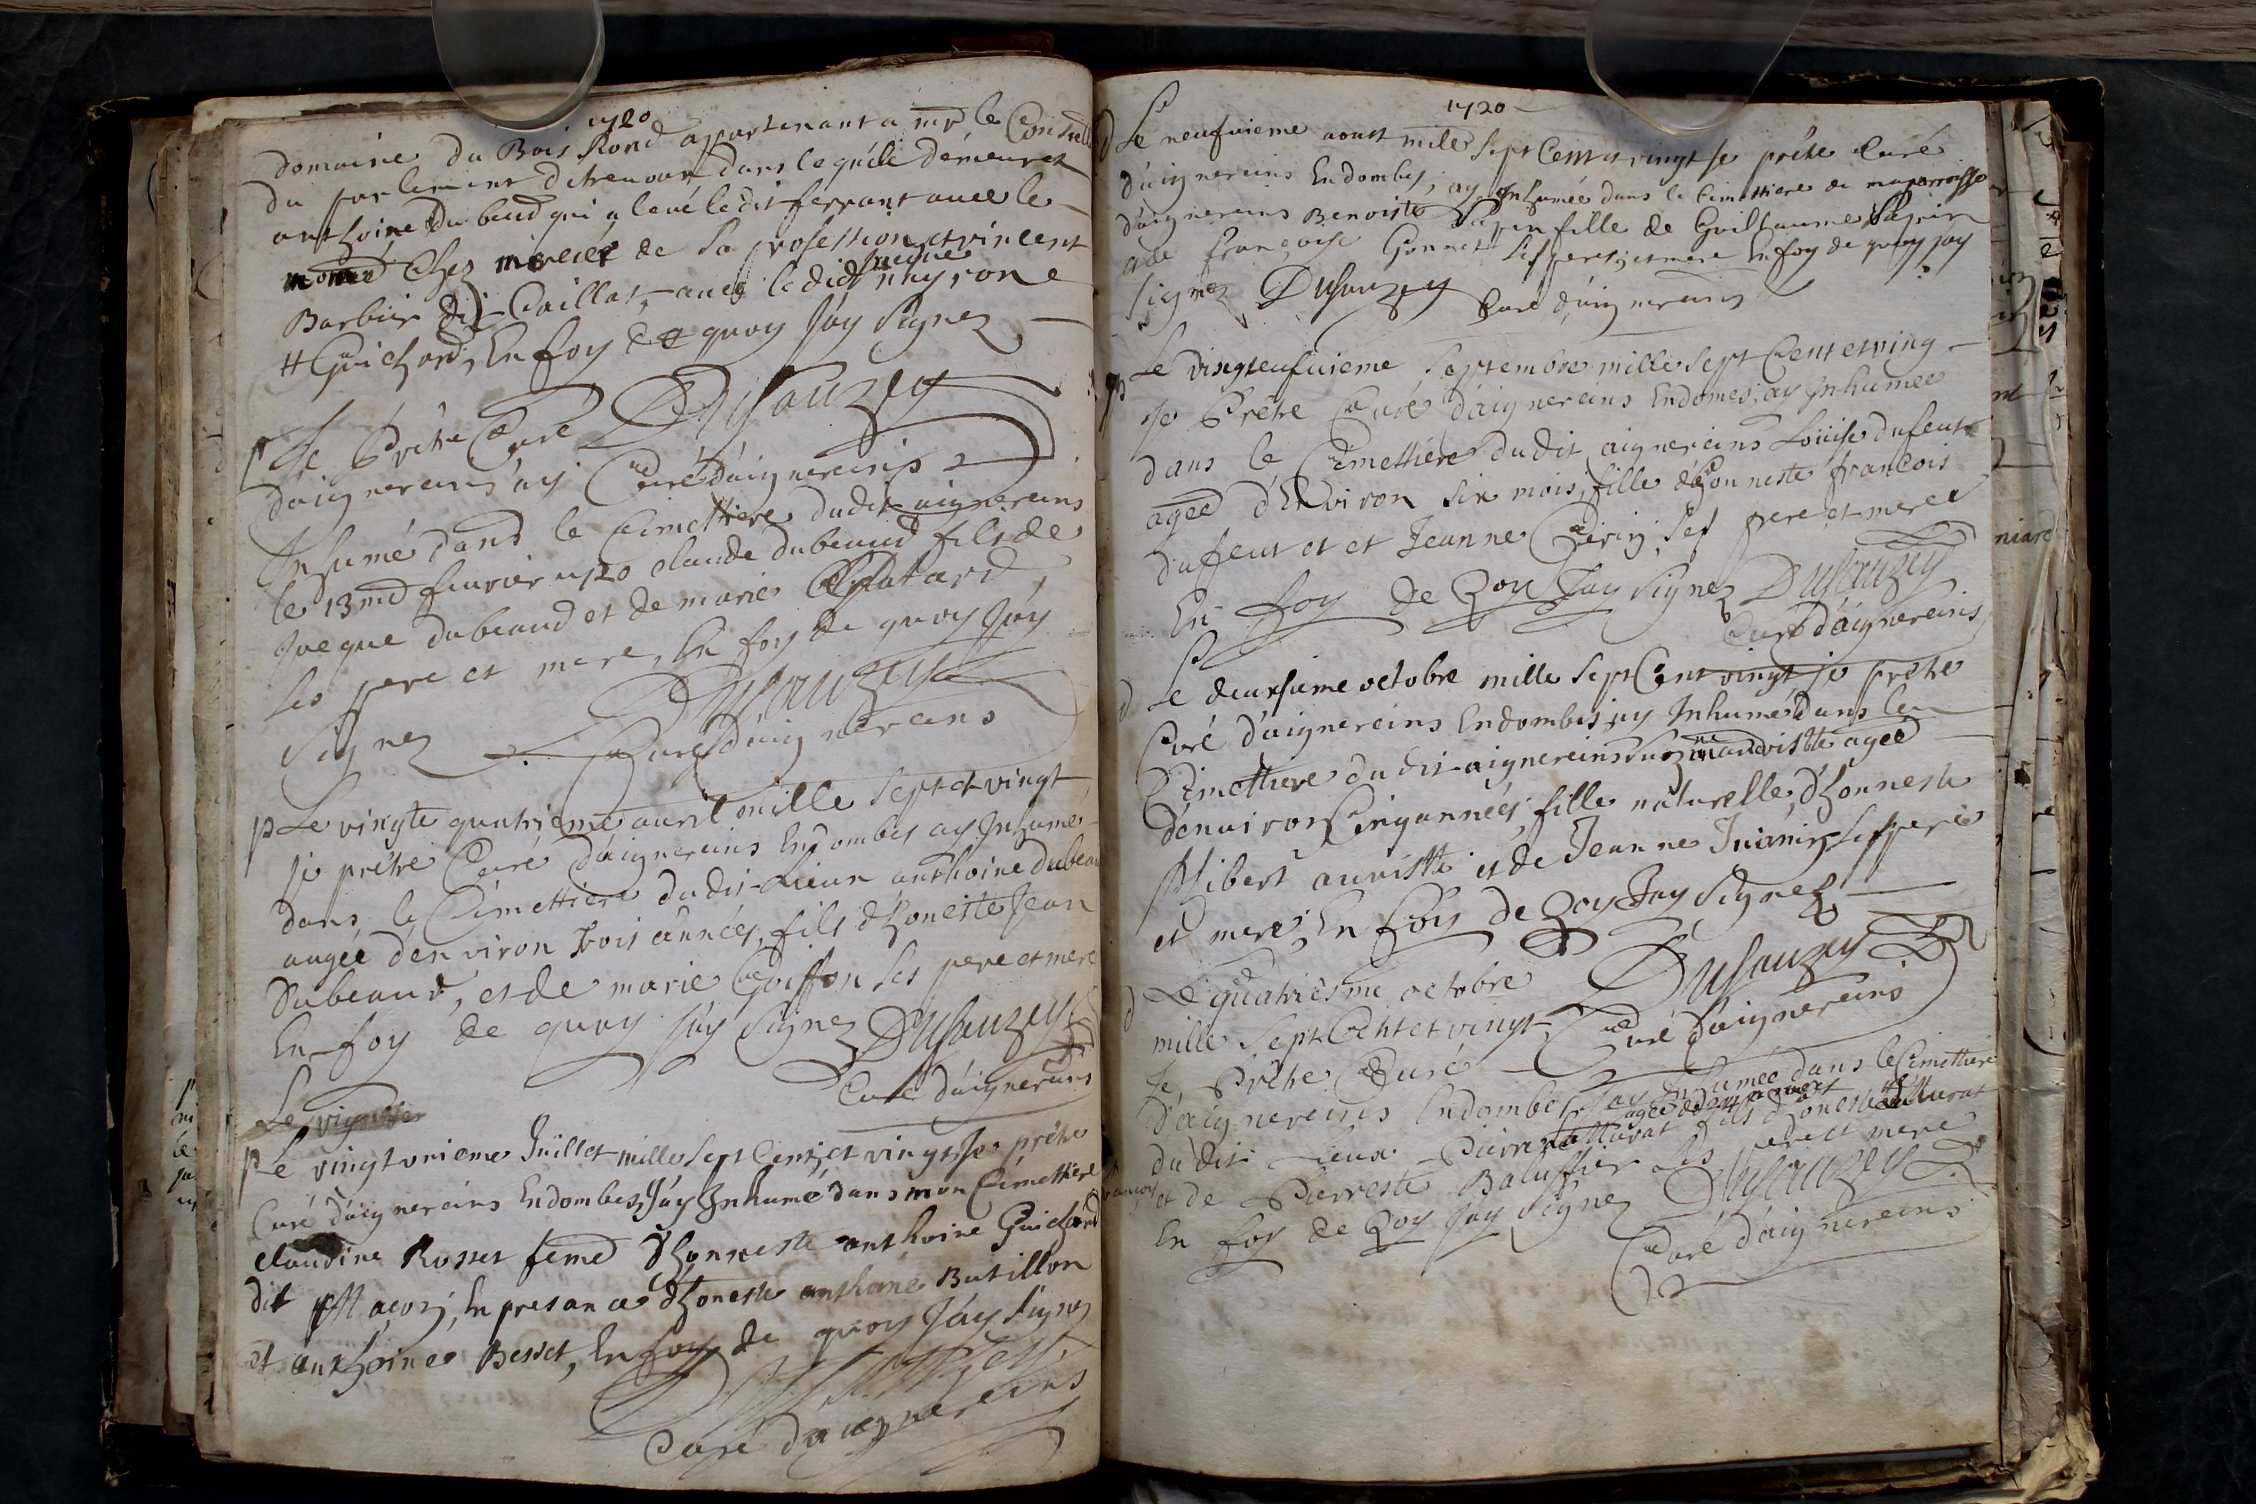 1720
domaine du Bois Rond appartenant a mr le
du parlement de trevoux dans lequele demeurez
anthoine Dubeaud qui a levé ledit ferrant avec le
chez de sa profession et vincent
Barbier dit Caillat, avec ledict
Guichard, En foy de quoy Jay Signez
Dusauzey
Je Prêtre Curé
d'aignereins ay Curé d'aignereins
Inhumé dans le Cimettiere dudit aignereins
le 13me feuvrier 1720 claude dubeaud fils de
Jacque dubeaud et de marie
ses pere et mere, En foy de quoy Jáy
Dusauzey
Signez Curé d'aignereins
Le vingte quatrieme avril mille Sept et vingt
je prêtre Curé d'aignereins En dombes ay Inhumé
dans le Cimettiere dudit Lieux anthoine dubeau
augée d'environ trois années, fils d'honeste Jean
Dubeaud, et de marie Goiffon ses pere et mere
En foy de quoy Jáy Signez Dusauzey
Curé d'aignereins
Le
Le vingt unieme Juillet mille Sept Cent, et vingt, Je prêtre
Curé d'aignereins En dombes, Jáy Inhumé dans mon Cimettiere
claudine Rosset feme d'honneste anthoine Guichard
dit Maçon, En presance d'honeste anthoine Butillon
et anthoine Besset, En foy de quoy Jáy Signez
Dusauzey
Curé d'aignereins
1720
Le neufvieme aoust mile Sept Cent vingt Je prêtre Curé
d'aignereins En dombes, ay Inhumée dans le Cimettiere de ma parroisse
d'aignereins Benoiste Papin fille de Guilhaume Papin
a de françoise Gonnet Ses pere, et mere En foy de quoy jay
signez Dusauzey Curé d'aignereins
Le vingt neufvieme Septembre mille Sept Cent et ving
Je Prêtre Curé d'aignereins En domes, ay Inhumée
dans le Cimettiere dudit aignereins Loüise dufeut
agée d'Environ Six mois, fille d'honneste francois
duffeut et et Jeanne Perin, Ses pere, et mere
En foy de Qoy Jay Signez Dusauzey
Curé d'aignereins
Le deuxsieme octobre mille Sept Cent vingt je prêtre
Curé d'aignereins En dombes, ay Inhumé dans le
Cimettiere du dit aignereins agée
d'environ Cinq années, fille naturelle, d'honneste
Phibert et de Jeanne Ses pere
et mere, En foy de Qoy Jay Signez
Dusauzey
Le quatriesme octobre
mille Sept Cent et vingt Curé d'aignereins
Je Prêtre Curé
d'aignereins En dombes, Jay Inhumée dans le Cimettiere
du dit Lieux Pierre Murat fils d'honeste Murat
et de Pierreste Baluffier ses pere et mere
En foy de Qoy Jay Signez Dusauzey
Curé d'aignereins